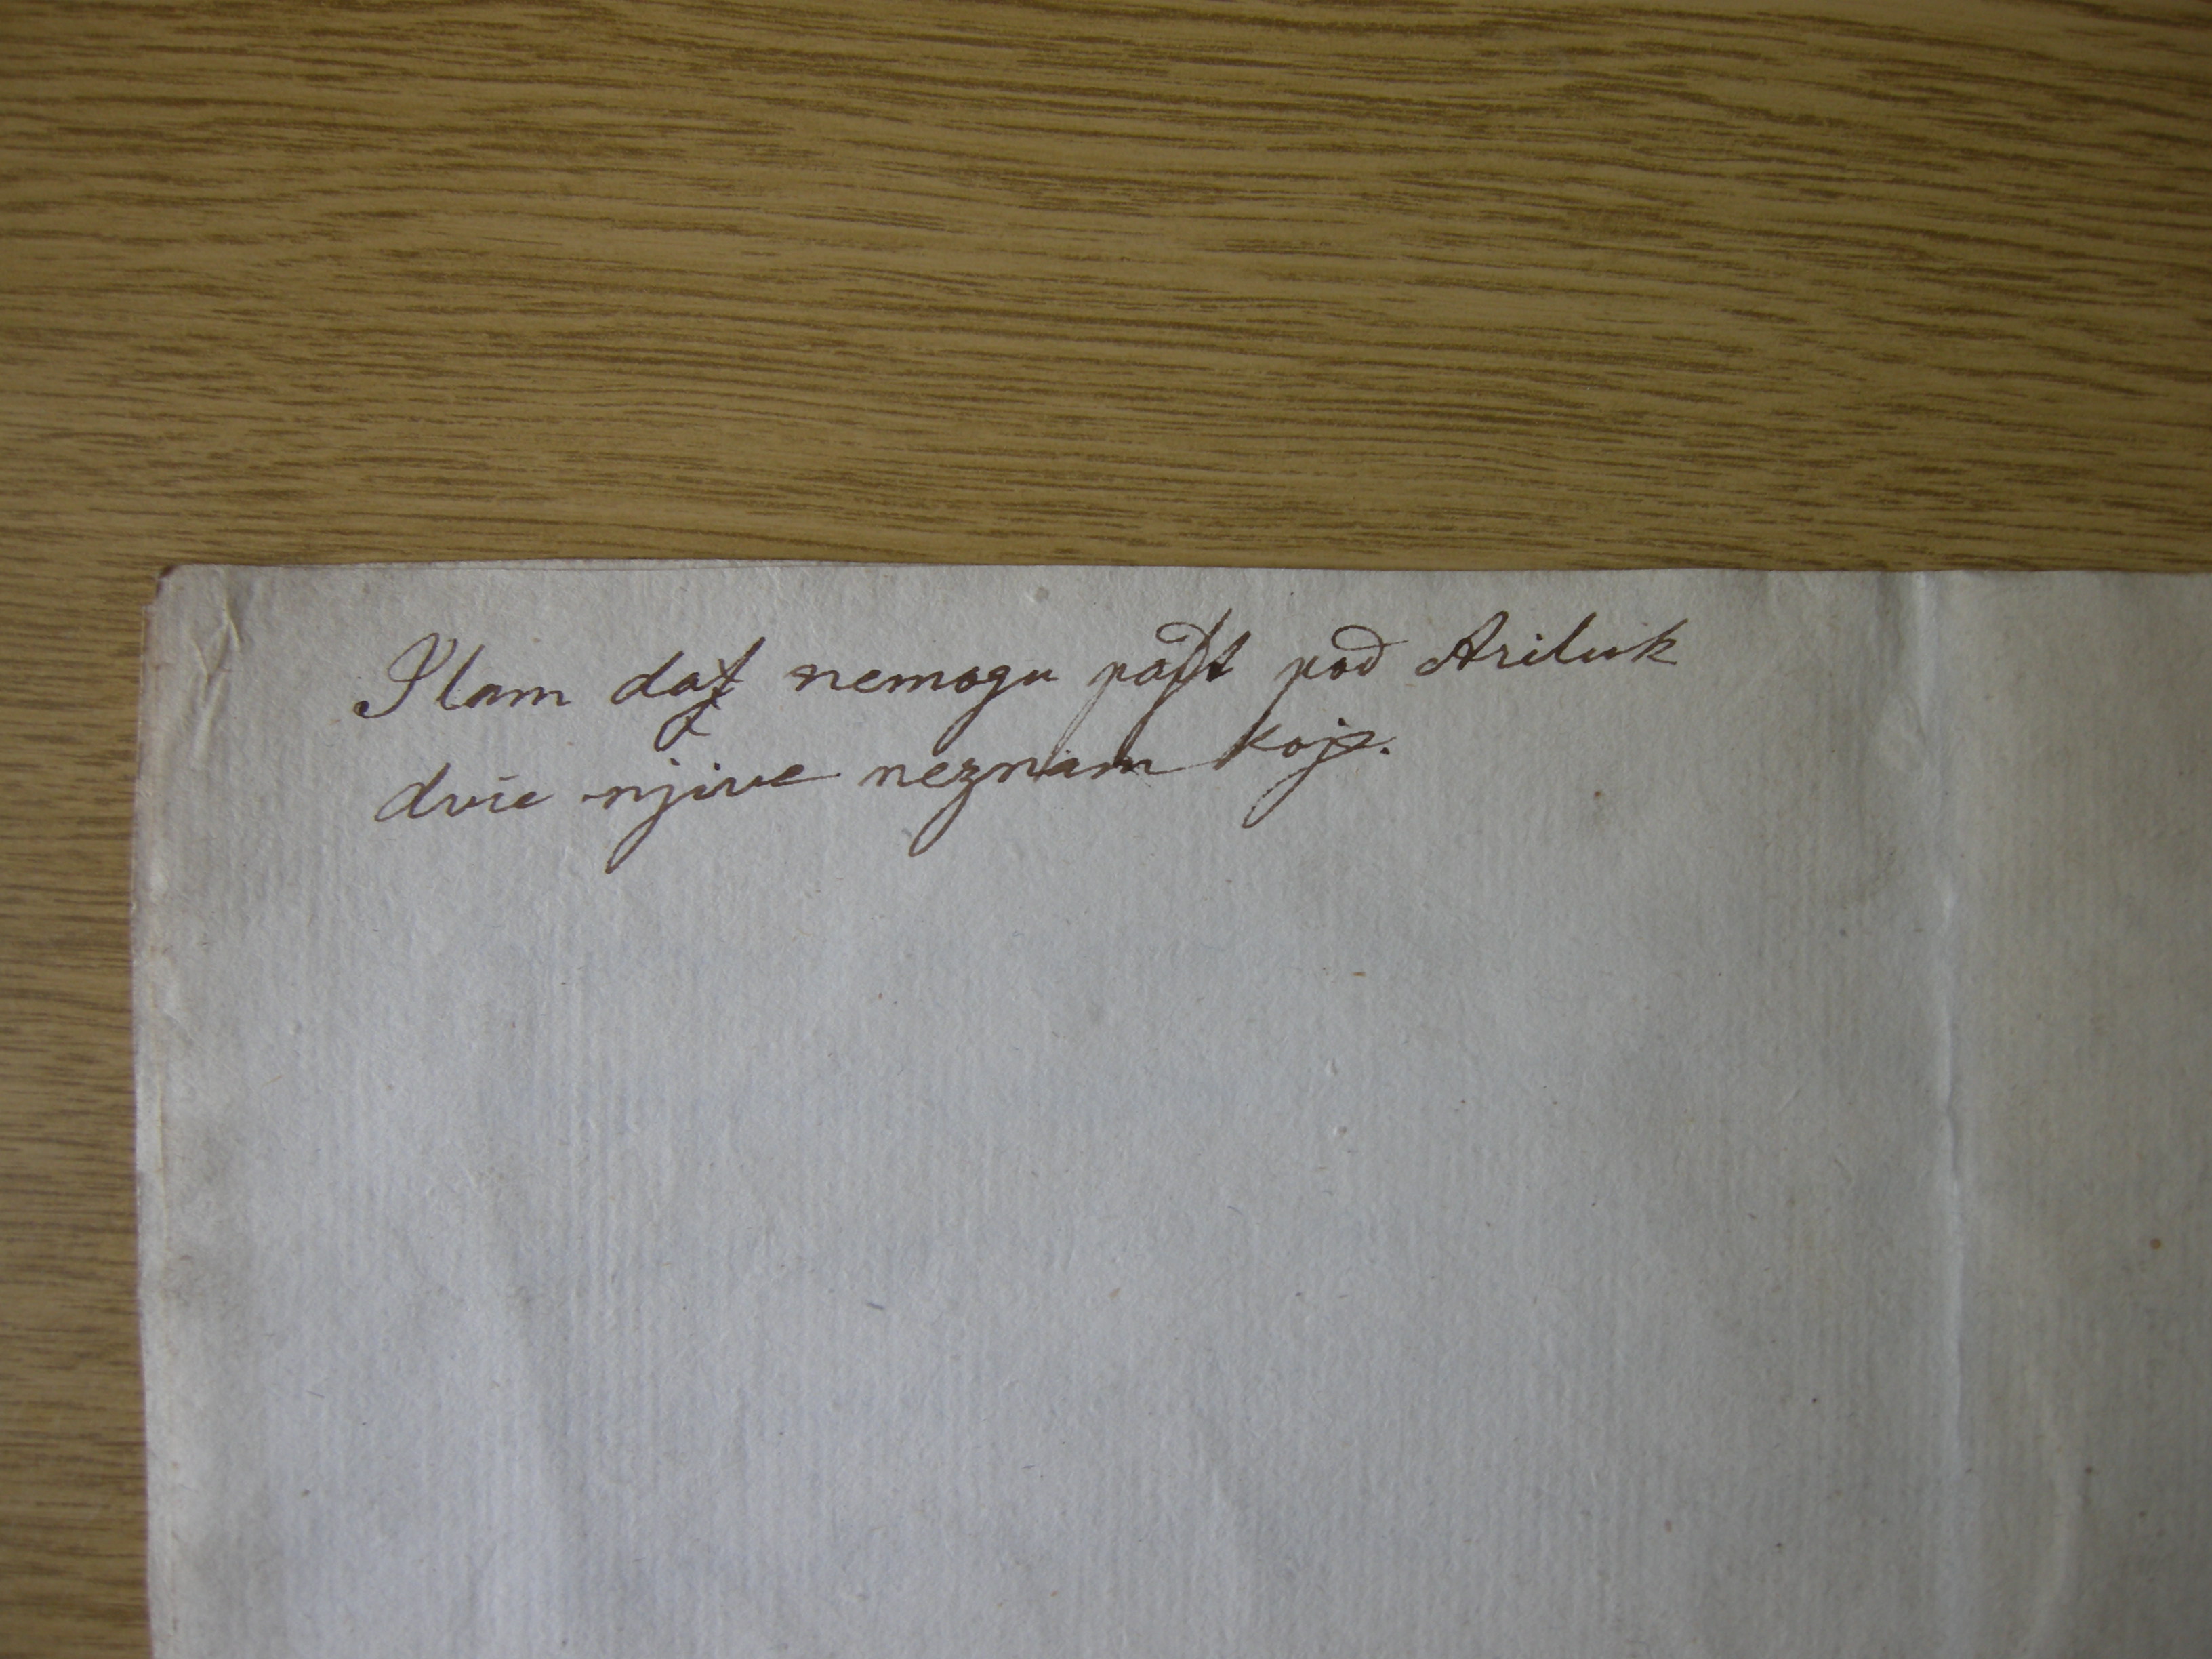 Ilam daf nemogu past pod Ariluk
dvie njive neznam koje.